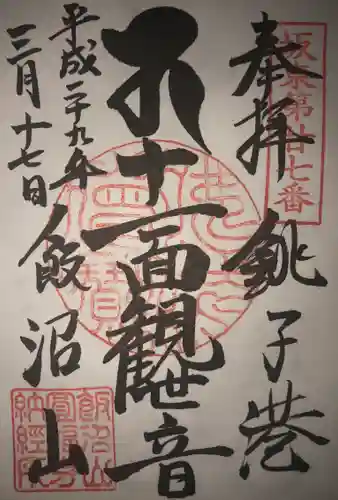 坂東第廿七番
奉拝 銚子港
十一面観世音
平成二十九年
三月十七日
飯沼山
飯沼山
圓福寺
納経所